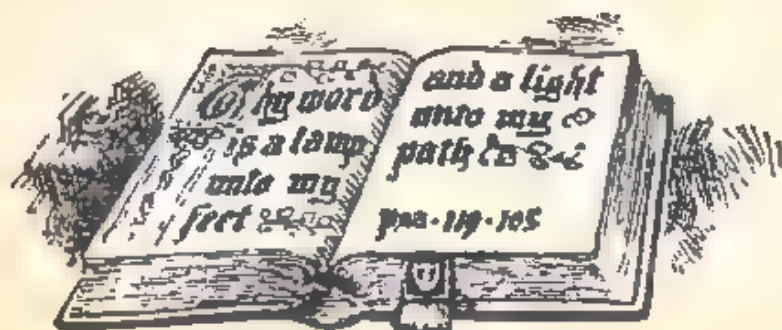 Thy word
is a lamp
unto my
feet
and a light
unto my
path
psa·119·105